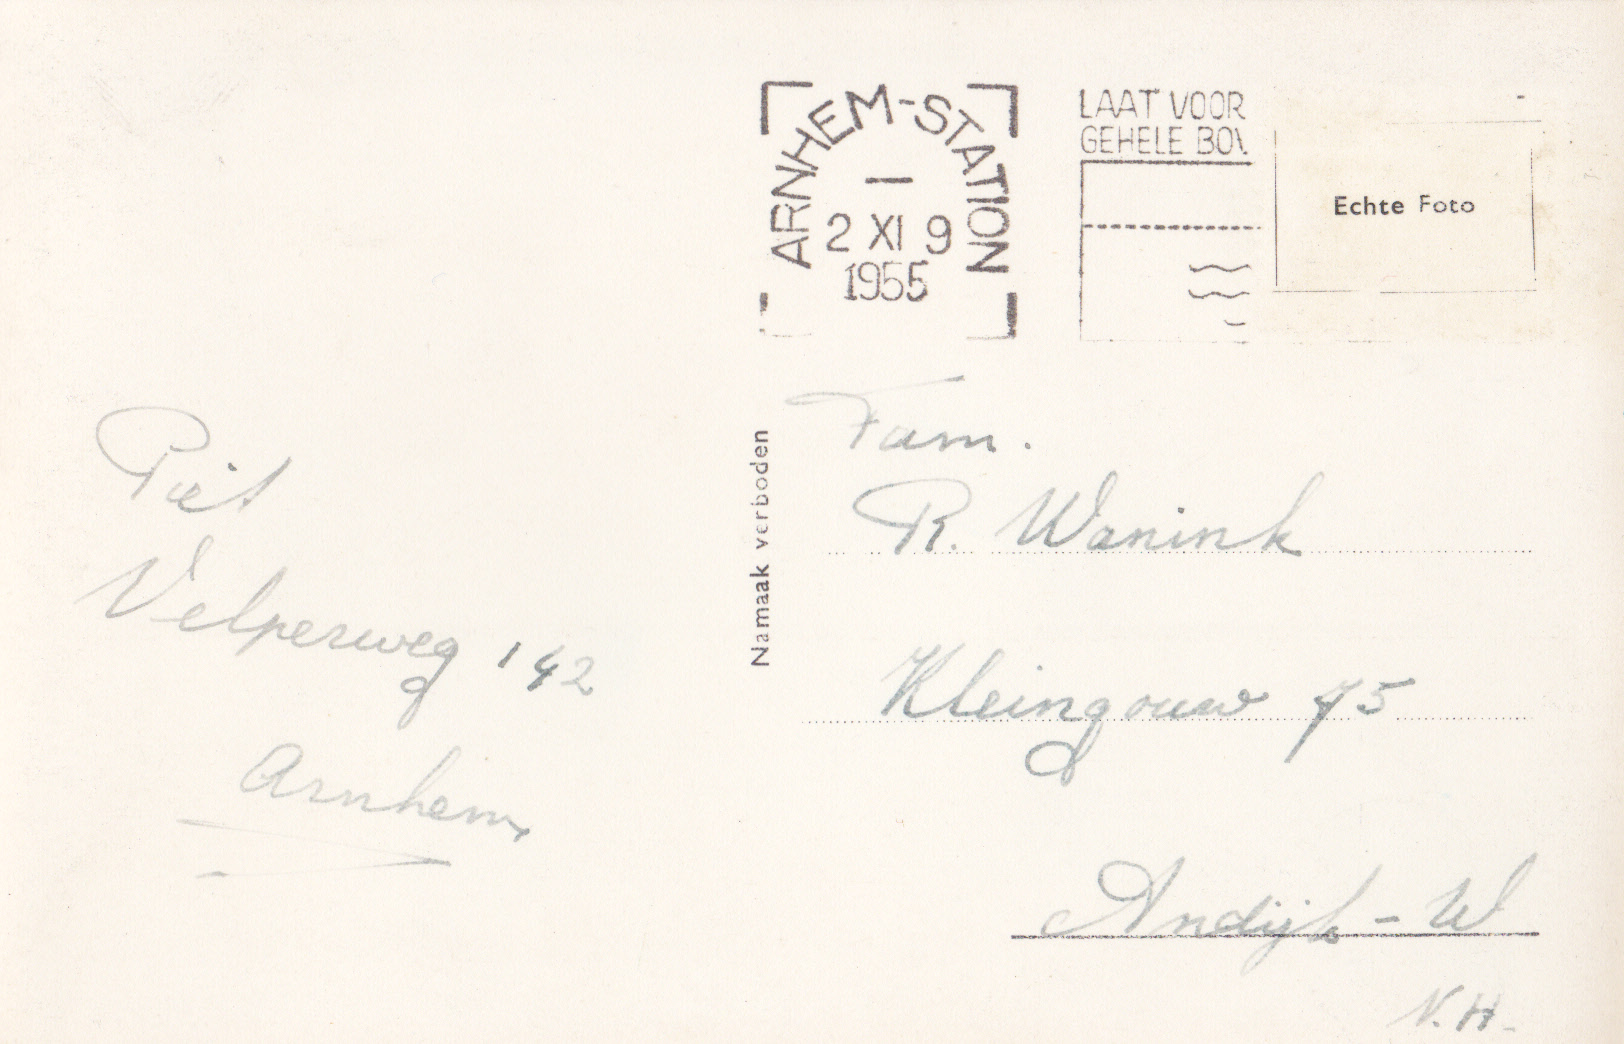 ARNHEM-STATION
2 XI 9
1955
LAAT VOOR
GEHELE BOV
Echte Foto
Namaak verboden
Piet
Velperweg 142
Arnhem
Fam.
R. Wanink
Kleingouw 75
Andijk - W
N.H.